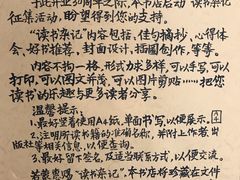 于此开业30周年之际,本书店启动"读书杂记"
征集活动,盼望得到您的支持。
"读书杂记"内容包括,佳句摘抄、心得体
会、好书推荐、封面设计、插图创作、等等。
内容不拘一格,形式力求多样,可以手写,可以
打印,可以图文并茂,可以图片剪贴……把您
读书的乐趣与更多读者分享。
温馨提示:
1.最好竖着使用A4纸,单面书写,以便展示。
2.注明所读书籍的准确名称,并附上作者、出
版社等相关信息,以便查询。
3.最好留下签名,及适当联系方式,以便交流。
若蒙惠赐"读书杂记",本书店将珍藏在文件